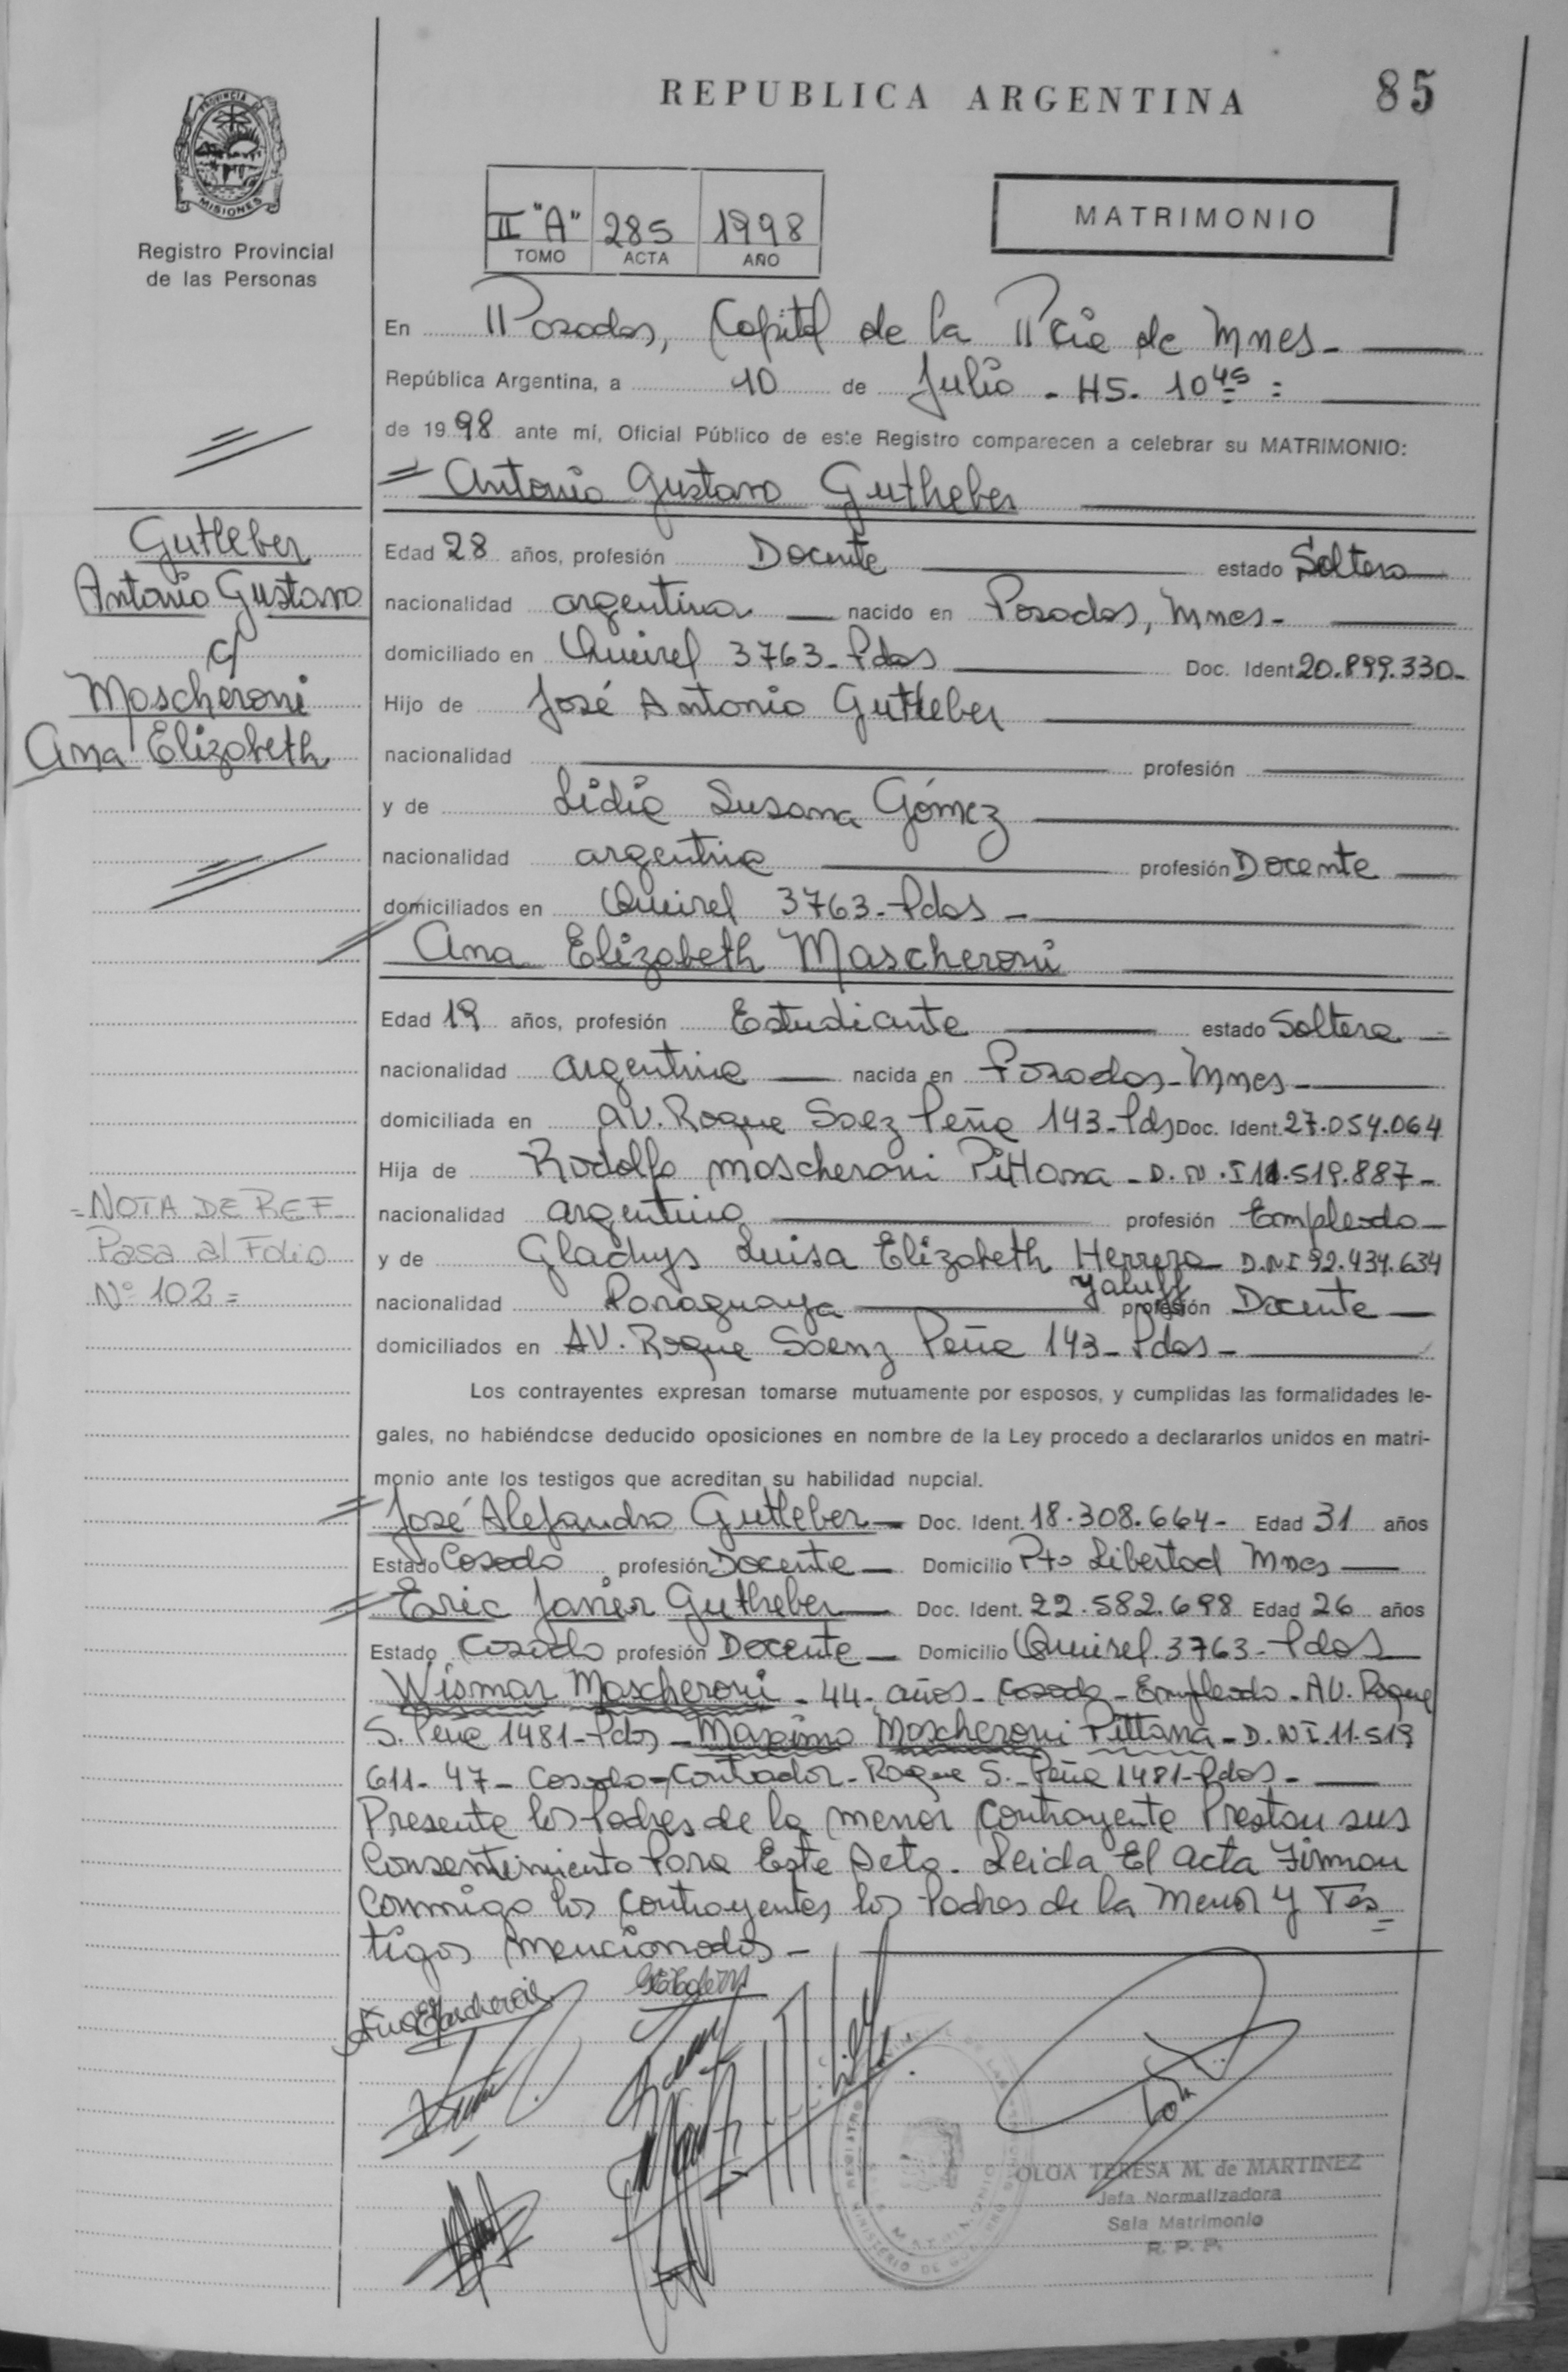 REPUBLICA ARGENTINA
85
PROVINCIA DE
MISIONES
Registro Provincial
de las Personas
II "A" 285 1998
TOMO ACTA AÑO
MATRIMONIO
En Posadas, Capital de la Pcia de Mnes-
República Argentina, a 10 de Julio - HS. 10 45 =
de 1998 ante mí, Oficial Público de este Registro comparecen a celebrar su MATRIMONIO:
Antonio Gustavo Gutheber
Gutleber
Antonio Gustavo
c/
Mascheroni
Ana Elizabeth
Edad 28 años, profesión Docente estado Soltero
nacionalidad argentina nacido en Posadas, Mnes-
domiciliado en Queirel 3763- Pdas Doc. Ident 20.899.330-
Hijo de José Antonio Gutleber
nacionalidad profesión
y de Lidia Susana Gómez
nacionalidad argentina profesión Docente
domiciliados en Queirel 3763- Pdas -
Ana Elizabeth Mascheroni
Edad 19 años, profesión Estudiante estado Soltera
nacionalidad argentina nacida en Posadas- Mnes-
domiciliada en AV. Roque Saez Peña 143- Pds Doc. Ident. 27.054.064
Hija de Rodolfo Mascheroni Pittona - D.N.I 11.519.887-
nacionalidad argentino profesión Empleado
y de Gladhys Luisa Elizabeth Herrera D.N.I 92.434.634
Yaluff
nacionalidad Paraguaya profesión Docente
domiciliados en AV. Roque Saenz Peña 143- Pdas-
=NOTA DE REF
Pasa al Folio
Nº 102=
Los contrayentes expresan tomarse mutuamente por esposos, y cumplidas las formalidades le-
gales, no habiéndose deducido oposiciones en nombre de la Ley procedo a declararlos unidos en matri-
monio ante los testigos que acreditan su habilidad nupcial.
José Alejandro Gutleber Doc. Ident. 18.308.664- Edad 31 años
Estado Casado profesión Docente Domicilio Pto Libertad Mnes
Eric Javier Gutheber Doc. Ident. 22.582.698 Edad 26 años
Estado Casado profesión Docente Domicilio Queirel 3763- Pdas
Wismar Mascheroni - 44- años- Casado- Empleado- AV. Roque
S. Peña 1481- Pdas - Maximo Mascheroni Pittana- D.NI.11.519
611- 47- Casado- Contador- Roque S. Peña 1481- Pdas-
Presente los Padres de la menor contrayente Prestan sus
Consentimiento Para Este Acto. Leida El Acta Firman
Conmigo los contrayentes los Padres de la Menor y Tes
tigos mencionados -
OLGA TERESA M. de MARTINEZ
Jefa Normalizadora
Sala Matrimonio
R. P. P.